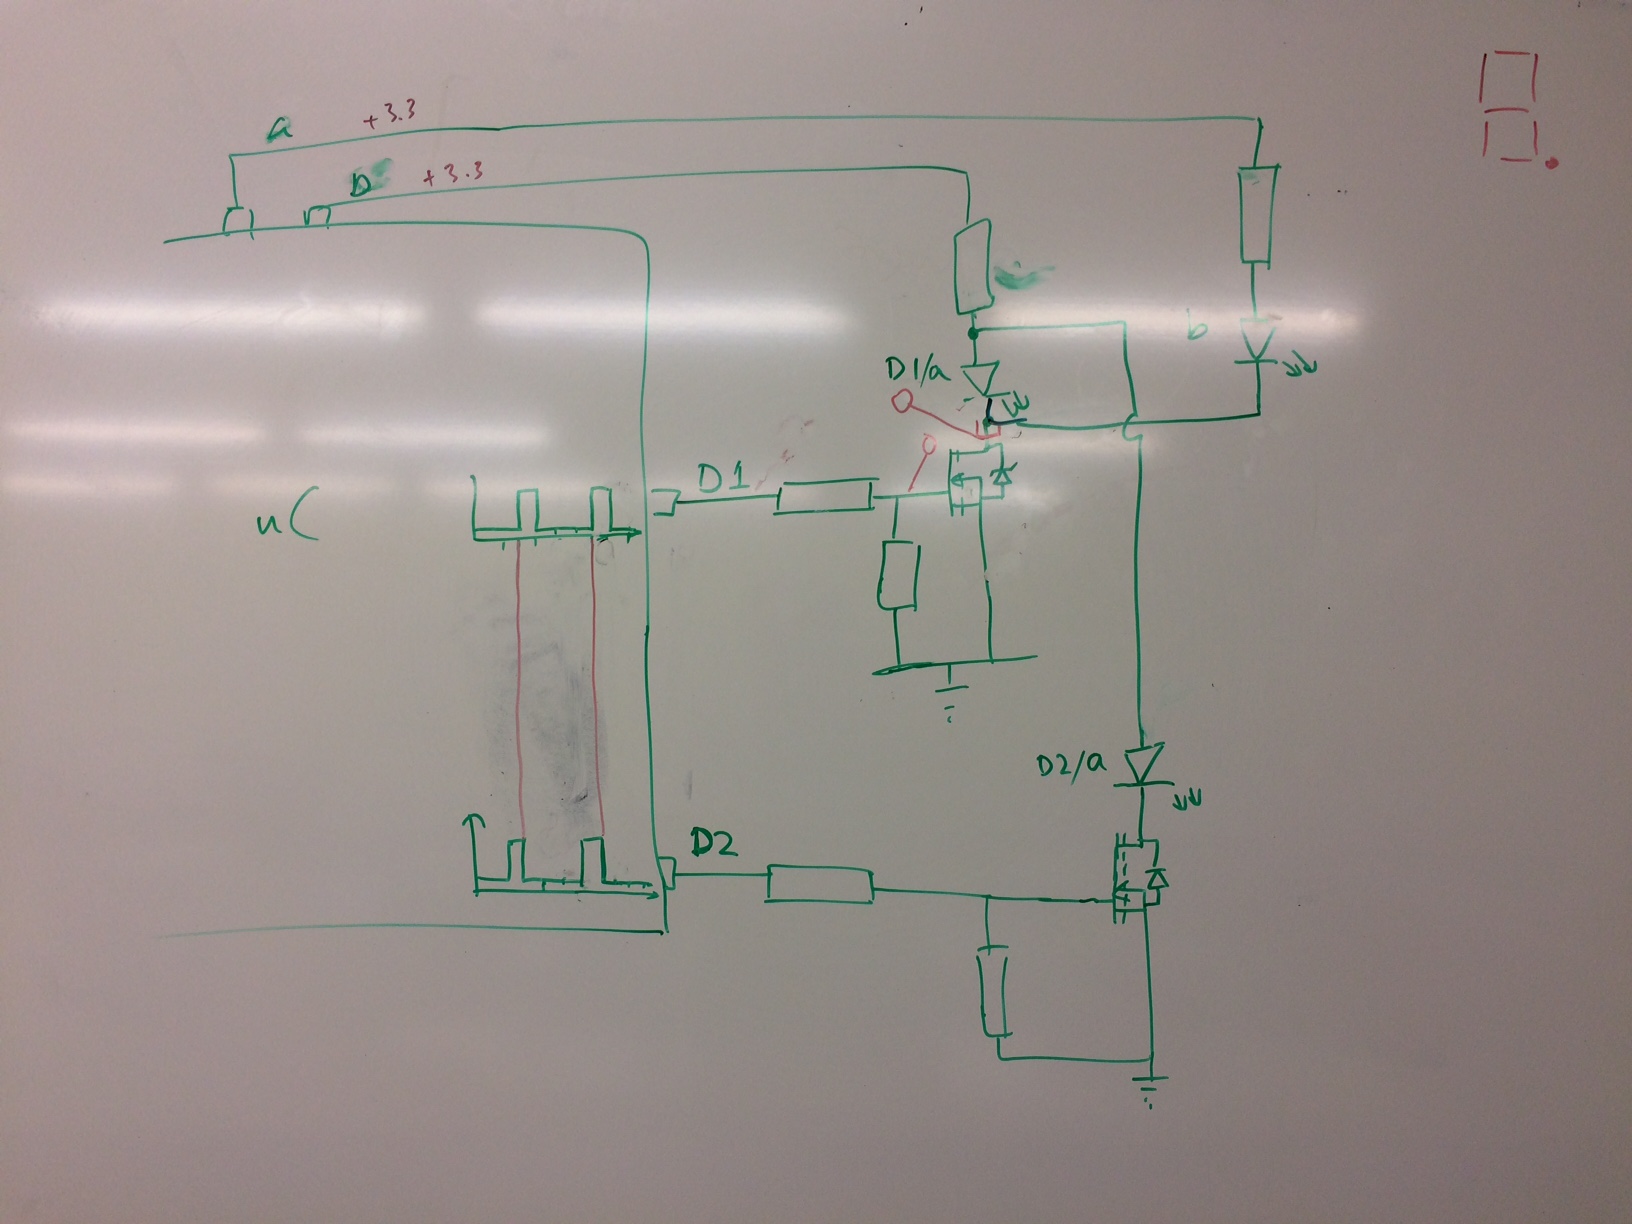 a +3.3
b +3.3
b
D1/a
D1
uC
D2/a
D2